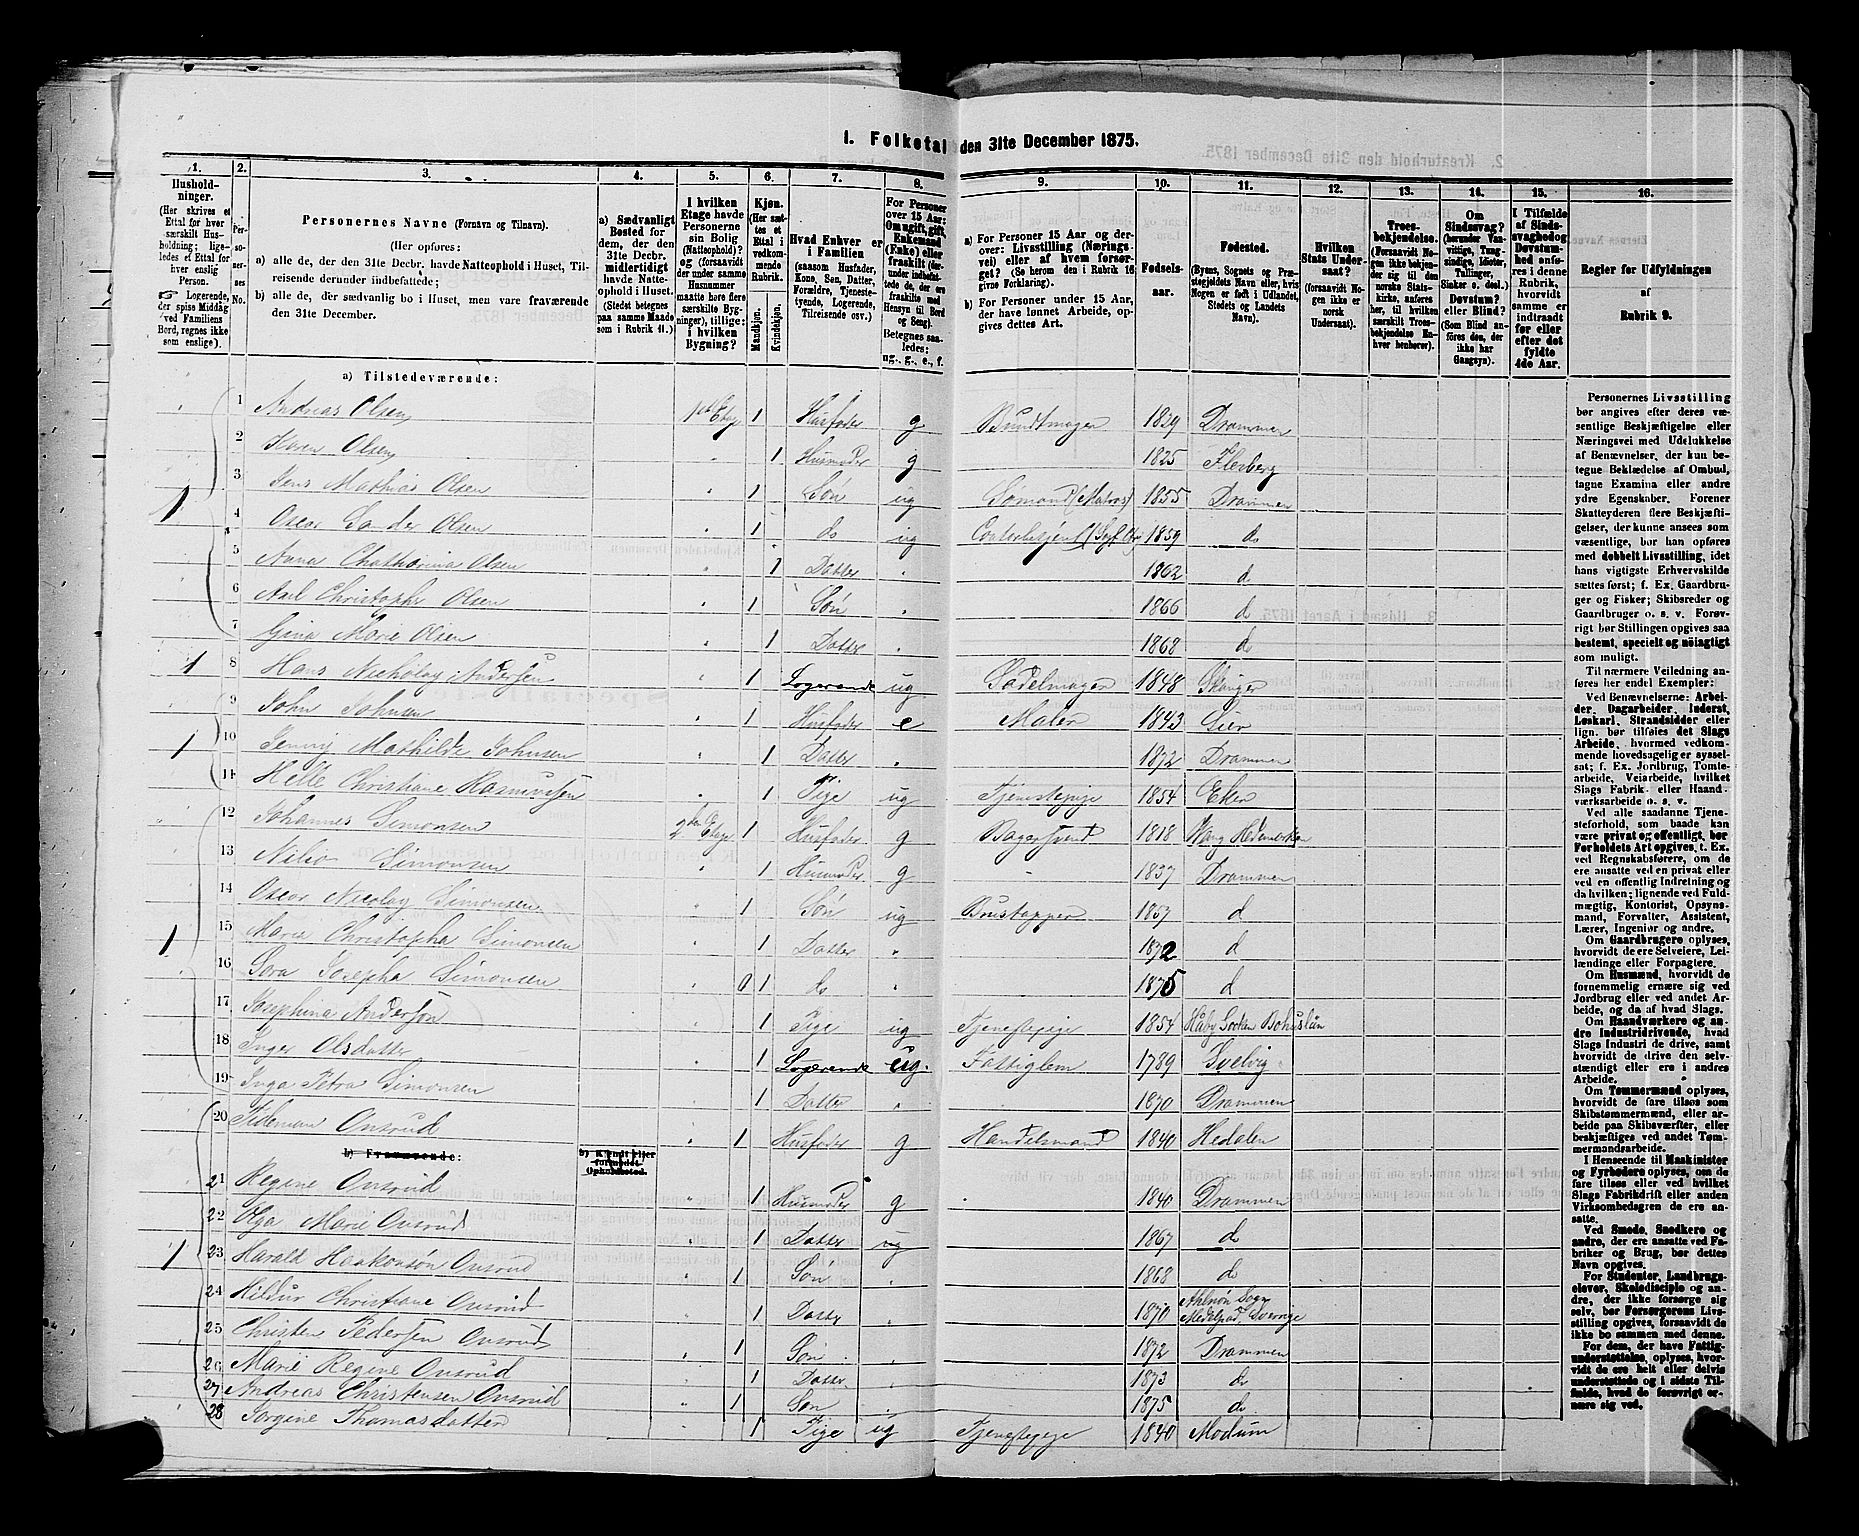 1. Folketal den 31te December 1875.
1. 2. 3. 4. 5. 6. 7. 8. 9. 10. 11. 12. 13. 14. 15. 16.
Husholdninger.
(Her skrives et Ettal for hver særskilt Husholdning; ligeledes et Ettal for hver enslig Person.
☞ Logerende, der spise Middag ved Familiens Bord, regnes ikke som enslige).
Personernes No.
Personernes Navne (Fornavn og Tilnavn).
(Her opføres:
a) alle de, der den 31te Decbr. havde Natteophold i Huset, Tilreisende derunder indbefattede;
b) alle de, der sædvanlig bo i Huset, men vare fraværende den 31te December.
a) Sædvanligt Bosted for dem, der den 31te Decbr. midlertidigt havde Natteophold i Huset. (Stedet betegnes paa samme Maade som i Rubrik 11.)
I hvilken Etage havde Personerne sin Bolig (Natteophold)? og (forsaavidt der under samme Husnummer maatte høre flere særskilte Bygninger), tillige: i hvilken Bygning?
Kjøn. (Her sættes et Ettal i vedkommende Rubrik.
Mandkjøn.
Kvindekjøn.
Hvad Enhver er i Familien (saasom Husfader, Kone, Søn, Datter, Forældre, Tjenestetyende, Logerende, Tilreisende osv.)
For Personer over 15 Aar: Om ugift, gift, Enkemand (Enke) eller fraskilt
Betegnes saaledes: ug., g., e., f.
a) For Personer 15 Aar og derover: Livsstilling (Næringsvei) eller af hvem forsørget? (Se herom den i Rubrik 16 givne Forklaring).
b) For Personer under 15 Aar, der have lønnet Arbeide, opgives dettes Art.
Fødselsaar.
Fødested.
(Byens, Sognets og Præstegjeldets Navn eller, hvis Nogen er født i Udlandet, Stedets og Landets Navn).
Hvilken Stats Undersaat? (forsaavidt Nogen ikke er norsk Undersaat).
Troesbekjendelse. (Forsaavidt Nogen ikke bekjender sig til den norske Statskirke, anføres her, til hvilken særskilt Troesbekjendelse Enhver henhører).
Om Sindssvag? (herunder Vanvittige, Tungsindige, Idioter, Tullinger, Sinker o. desl.) Døvstum? eller Blind? (Som Blind anføres den, der ikke har Gangsyn).
I Tilfælde af Sindssvaghed og Døvstumhed anføres i denne Rubrik, hvorvidt samme er indtraadt før eller efter det fyldte 4de Aar.
Regler for Udfyldningen
af
Rubrik 9.
a) Tilstedeværende:
1 Andreas Olsen 1ste Etage 1 Husfader g Bundtmager 1829 Drammen
2 Karen Olsen " 1 Husmoder g 1825 Flesberg
3 Jens Mathias Olsen " 1 Søn ug Sømand (Matros) 1855 Drammen
1 4 Oscar Sander Olsen " 1 do ug 1859 do
5 Anna Chatharina Olsen " 1 Datter 1862 d
6 Axel Christopher Olsen " 1 Søn 1866 d
7 Gina Marie Olsen 1 Datter 1868 d
1 8 Hans Nickolay Andersen " 1 Logerende ug Sadelmager 1848 Stanger
9 John Johnsen " 1 Husfader e Maler 1843 Lier
1 10 Jenny Mathilde Johnsen " 1 Datter 1872 Drammen
11 Helle Christiane Rasmussen " 1 Pige ug Tjenestepige 1854 Eker
12 Johannes Simonsen 2den Etage 1 Husfader g Bagersvend 1818 Vang Hedemarken
13 Simonsen " 1 Husmoder g 1837 Drammen
14 Oscar Nicolay Simonsen " 1 Søn ug 1857 d
1 15 Maria Christopha Simonsen " 1 Datter 1872 d
16 Sara Josepha Simonsen " 0 1 do 1875 d
17 Josephina Anderson " 1 Pige ug Tjenestepige 1854 Håby Socken Bohuslän
18 Inger Olsdatter " 1 Logerende ug. Fattiglem 1789 Svelvig
19 Inga Petra Simonsen 1 Datter 1870 Drammen
20 Tideman Onsrud " 1 Husfader g Handelsmand 1840 Hedalen
b) Fraværende: b) Kjendt eller formodet Opholdssted.
21 Regine Onsrud " 1 Husmoder g 1840 Drammen
22 Olga Marie Onsrud " 1 Datter ug 1867 d
1 23 Harald Haakonsøn Onsrud " 1 Søn 1868 do
24 Hildur Christiane Onsrud 1 Datter 1870 Medelpad, Sverige
25 Christen Pedersen Onsrud " 1 Søn 1872 Drammen
26 Marie Regine Onsrud 1 Datter 1873 do
27 Andreas Christensen Onsrud " 1 Søn 1875 do
28 Jorgine Thomasdatter 1 Pige ug Tjenestepige 1840 Modum
Personernes Livsstilling
bør angives efter deres væ-
sentlige Beskjæftigelse eller
Næringsvei med Udelukkelse
af Benævnelser, der kun be-
tegne Beklædelse af Ombud,
tagne Examina eller andre
ydre Egenskaber. Forener
Skatteyderen flere Beskjæfti-
gelser, der kunne ansees som
væsentlige, bør han opføres
med dobbelt Livsstilling, idet
hans vigtigste Erhvervskilde
sættes først; f. Ex. Gaardbru-
ger og Fisker; Skibsreder og
Gaardbruger o. s. v. Forøv-
rigt bør Stillingen opgives saa
bestemt, specielt og nöiagtigt
som muligt.
Til nærmere Veiledning an-
føres her endel Exempler:
Ved Benævnelserne: Arbei-
der, Dagarbeider, Inderst,
Løskarl, Strandsidder eller
lign. bør tilføies det Slags
Arbeide, hvormed vedkom-
mende hovedsagelig er syssel-
sat; f. Ex. Jordbrug, Tomte-
arbeide, Veiarbeide, hvilket
Slags Fabrik- eller Haand-
værksarbeide o. s. v.
Ved alle saadanne Tjene-
steforhold, som baade kan
være privat og offentligt, bør
Forholdets Art opgives, t. Ex.
ved Regnskabsførere, om de
ere ansatte ved en privat eller
ved en offentlig Indretning og
da hvilken; lignende ved Fuld-
mægtig, Kontorist, Opsyns-
mand, Forvalter, Assistent,
Lærer, Ingeniør og andre.
Om Gaardbrugere oplyses,
hvorvidt de ere Selveiere, Lei-
lændinge eller Forpagtere.
Om Husmænd, hvorvidt de
fornemmelig ernære sig ved
Jordbrug eller ved andet Ar-
beide, og da af hvad Slags.
Om Haandværkere og an-
dre Industridrivende, hvad
Slags Industri de drive, samt
hvorvidt de drive den selv-
stændigt eller ere i andres
Arbeide.
Om Tømmermænd oplyses,
hvorvidt de fare tilsøs som
Skibstømmermænd, eller ar-
beide paa Skibsværfter, eller
beskjæftiges ved andet Tøm-
mermandsarbeide.
I Henseende til Maskinister
og Fyrbødere oplyses, om de
fare tilsøs eller ved hvilket
Slags Fabrikdrift eller anden
Virksomhedsgren de ere an-
satte.
Ved Smede, Snedkere og
andre, der ere ansatte ved Fa-
briker og Brug, bør dettes
Navn opgives.
For Studenter, Landbrugs-
elever, Skoledisciple og an-
dre, der ikke forsørge sig
selv, bør Forsørgerens Livs-
stilling opgives, forsaavidt de
ikke bo sammen med denne.
For dem, der have Fattig-
understøttelse, oplyses, hvor-
vidt de ere helt eller delvis
understøttede og i sidste Til-
fælde, hvad de forøvrigt er-
nære sig ved.